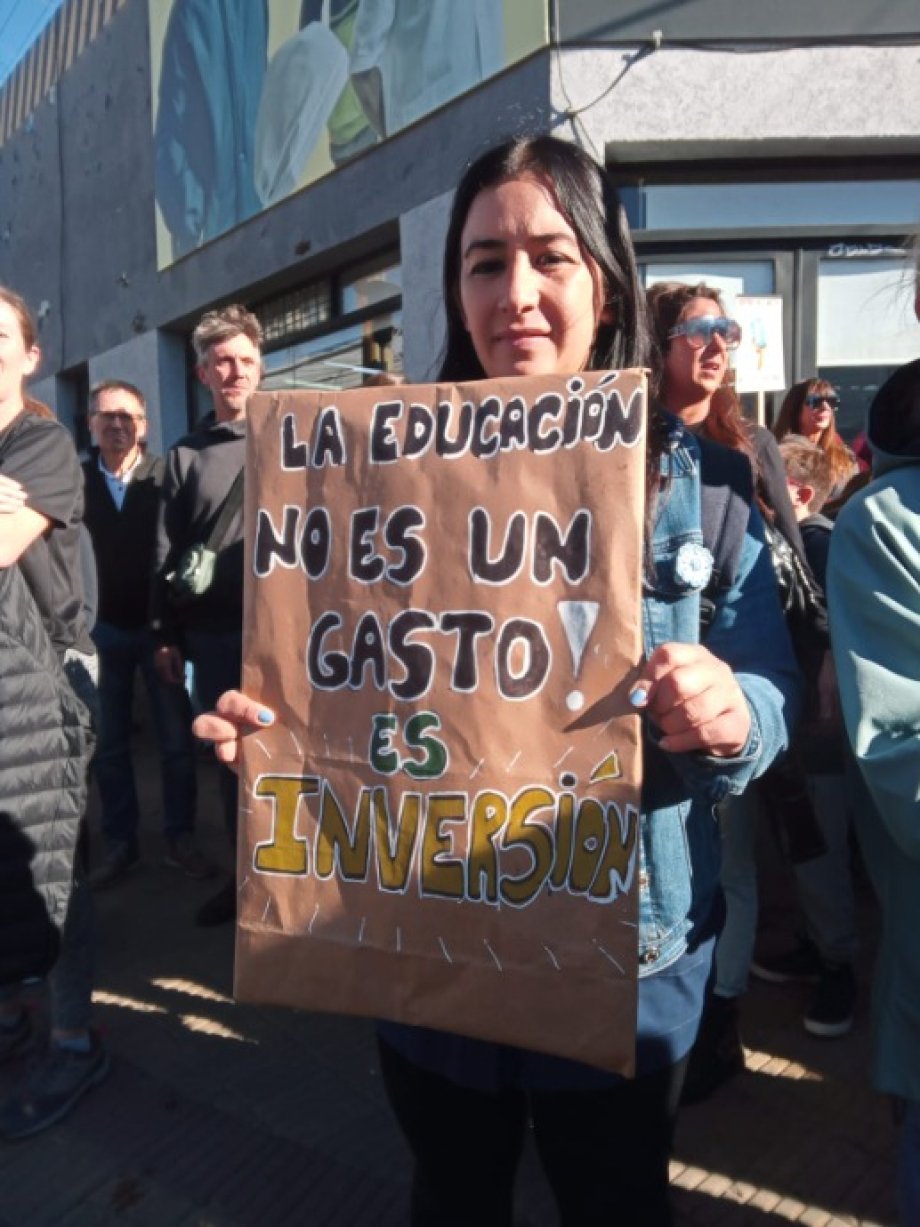 LA EDUCACIÓN
NO ES UN
GASTO!
ES
INVERSIÓN